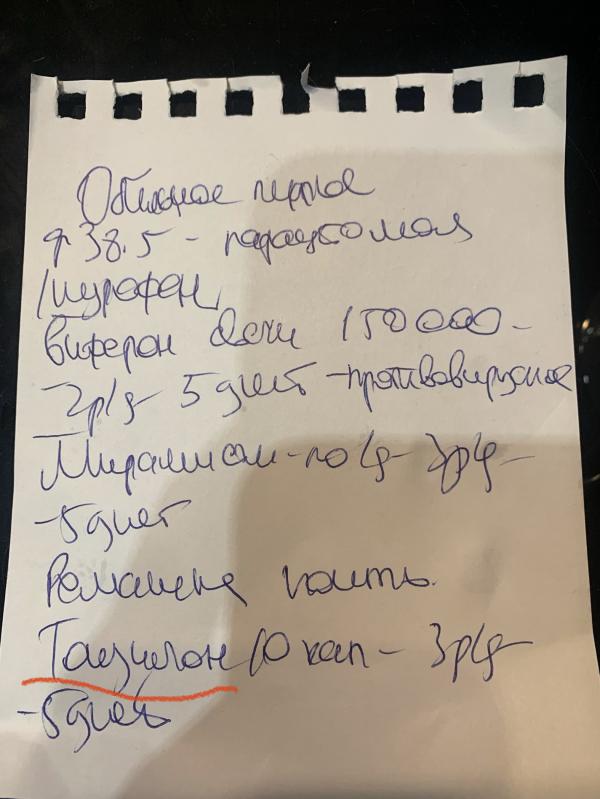 Обильное питье
t 38.5 - парацетомол
/нурофен,
Виферон свечи 150000 -
2р/д 5 дней - противовирусное
Мирамистин - по - 3р/д -
- 5 дней
Ромашка поить.
10 кап - 3р/д -
- 5 дней